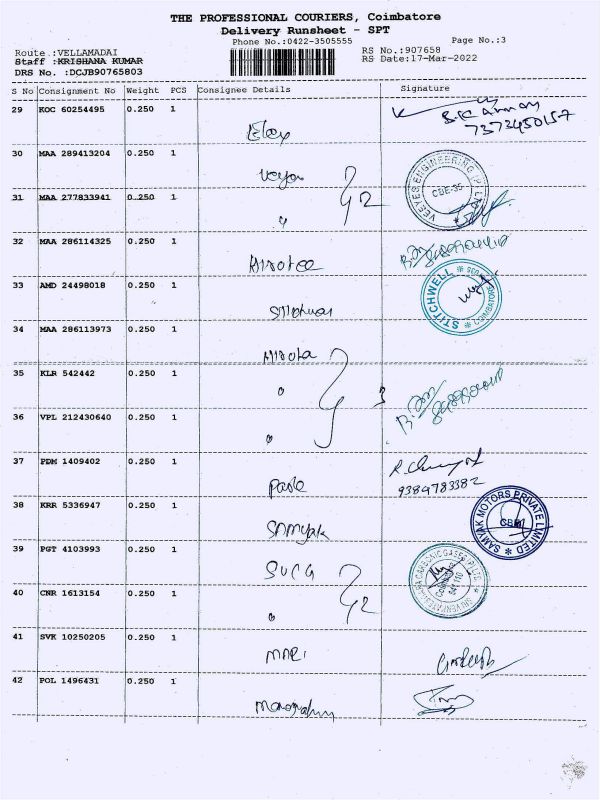 THE PROFESSIONAL COURIERS, Coimbatore
Delivery Runsheet - SPT
Phone No.:0422-3505555
Page No.:3
Route :VELLAMADAI
RS No.:907658
Staff :KRISHANA KUMAR
RS Date:17-Mar-2022
DRS No. :DCJB90765803
S No Consignment No Weight PCS Consignee Details Signature
29 KOC 60254495 0.250 1
7373450157
30 MAA 289413204 0.250 1
VEEYES ENGINEERING (P) LTD
CBE-35
31 MAA 277833941 0.250 1
2
32 MAA 286114325 0.250 1
33 AMD 24498018 0.250 1
STITCHWELL
COIMBATORE
34 MAA 286113973 0.250 1
Hirota
35 KLR 542442 0.250 1
3
36 VPL 212430640 0.250 1
37 PDM 1409402 0.250 1
9384783382
38 KRR 5336947 0.250 1
Samyak
SAMYAK MOTORS PRIVATE LIMITED
CBE
39 PGT 4103993 0.250 1
SUCG
40 CNR 1613154 0.250 1
2
41 SVK 10250205 0.250 1
MARI
42 POL 1496431 0.250 1